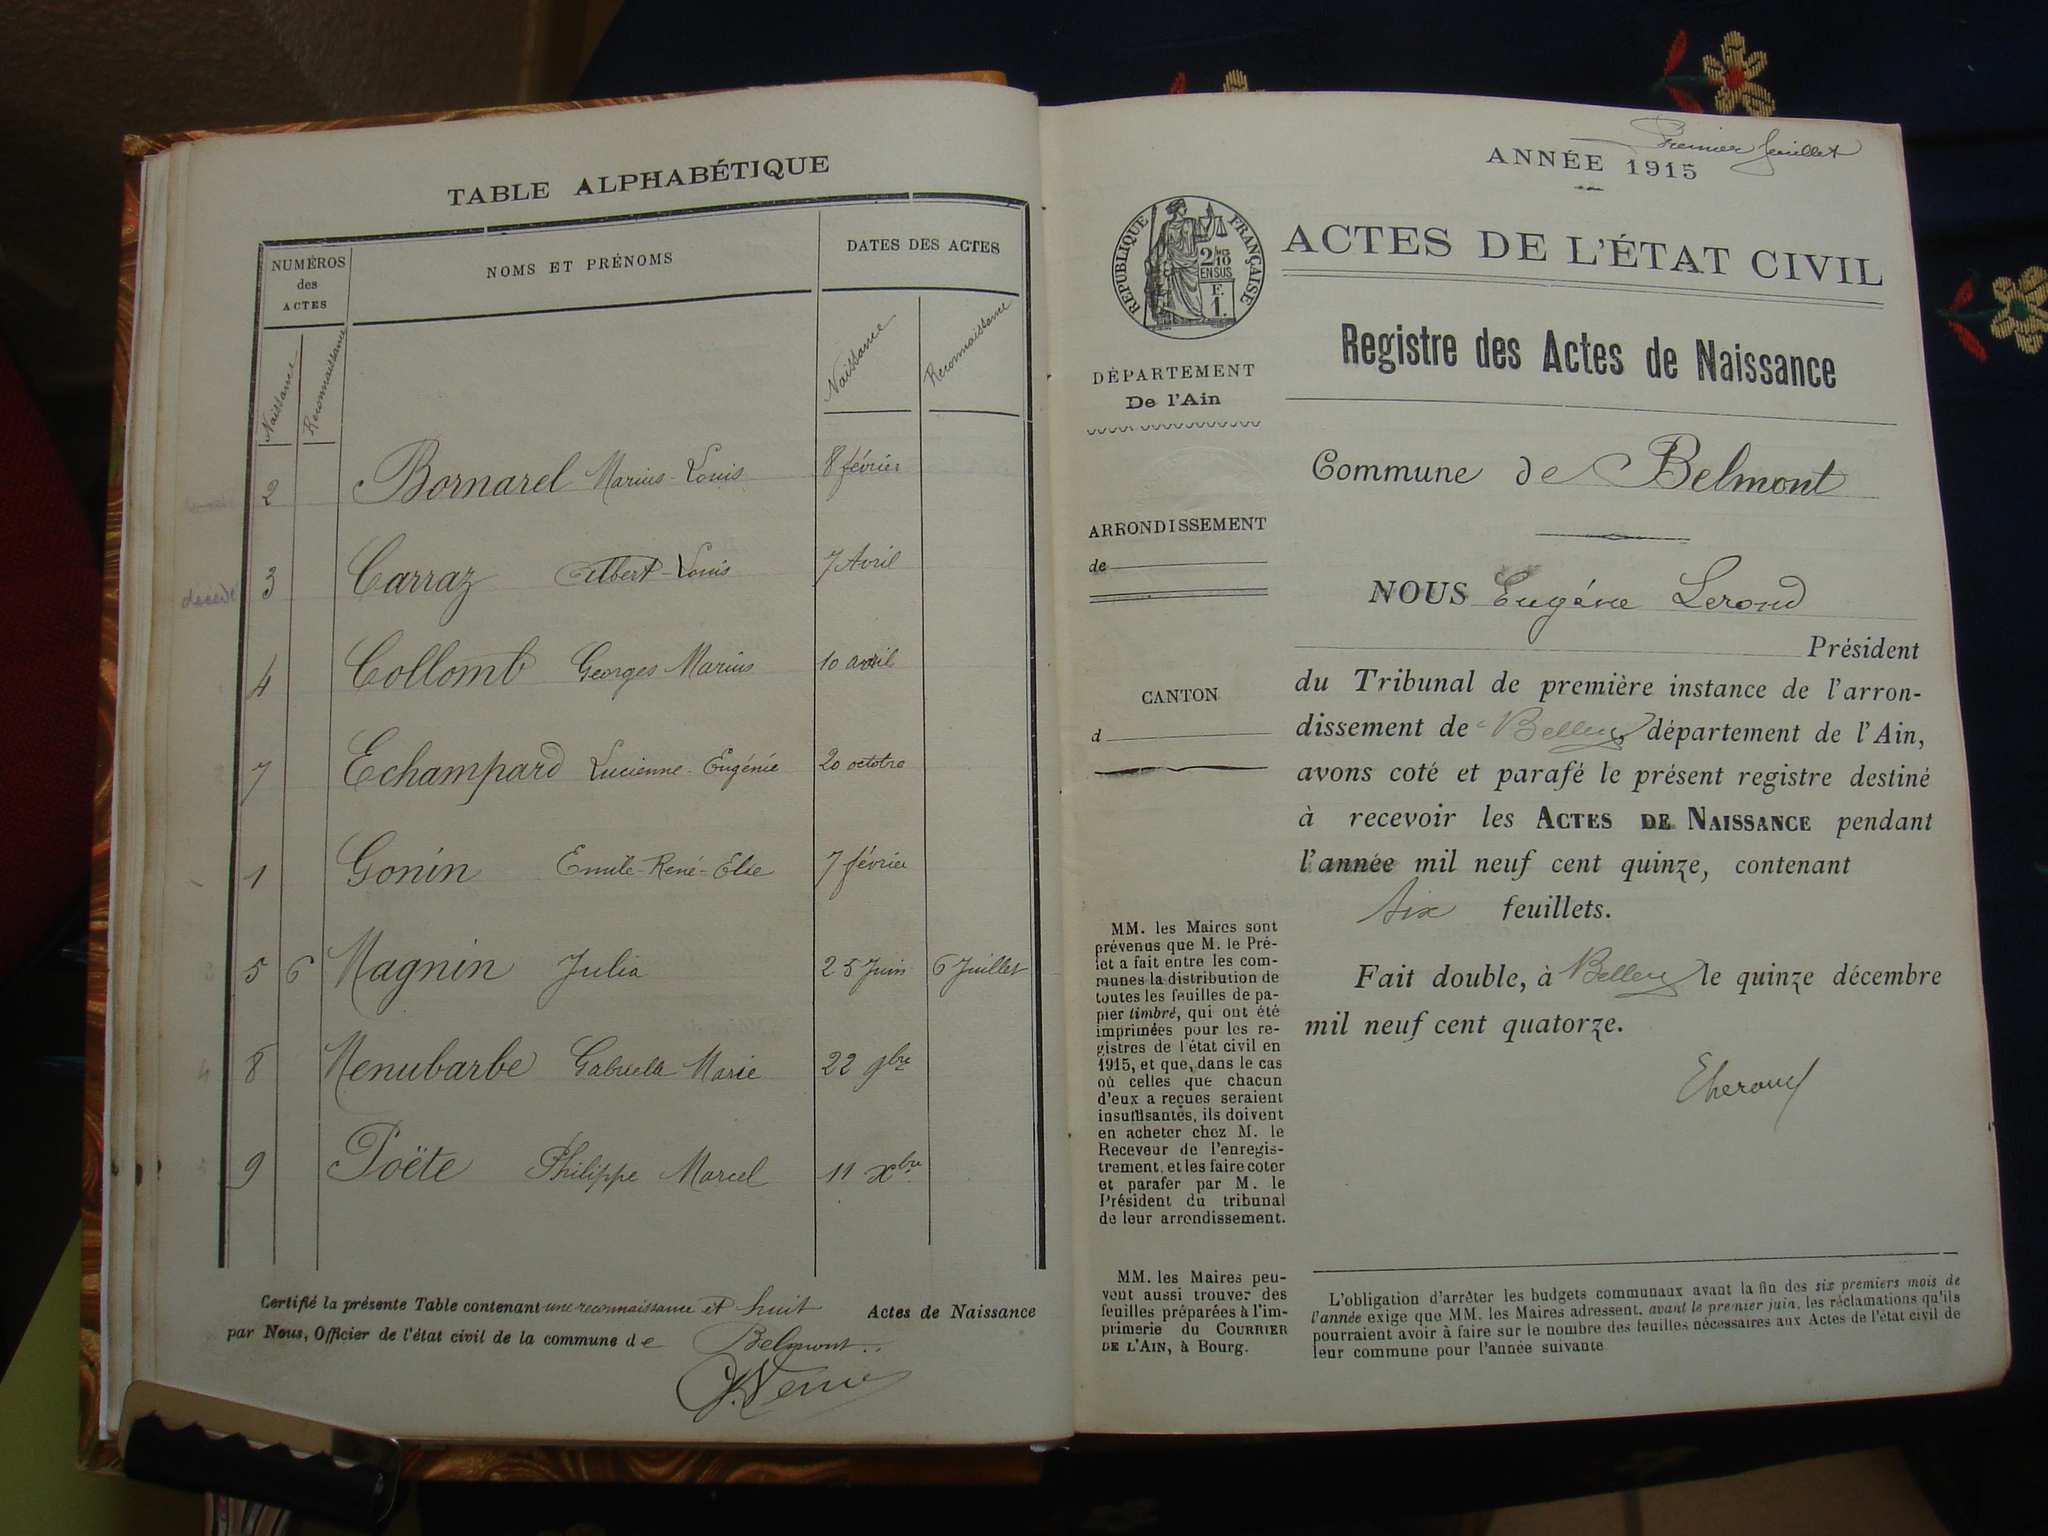 TABLE ALPHABÉTIQUE
NUMÉROS
des
ACTES
NOMS ET PRÉNOMS
DATES DES ACTES
Naissance
Reconnaissance
Naissance
Reconnaissance
2 Bornarel Marius-Louis 8 février
décédé 3 Carraz Albert-Louis 7 Avril
4 Collomb Georges Marius 10 avril
7 Echampard Lucienne-Eugénie 20 octobre
1 Gonin Emile-René-Elie 7 février
5 6 Magnin Julia 25 Juin 6 Juillet
8 Menubarbe Gabrielle Marie 22 9bre
9 Poëte Philippe Marcel 11 Xbre
Certifié la présente Table contenant une reconnaissance et huit Actes de Naissance
par Nous, Officier de l'état civil de la commune de Belmont
Premier feuillet
ANNÉE 1915
RÉPUBLIQUE FRANÇAISE
2/10
EN SUS
F.
1.
ACTES DE L'ÉTAT CIVIL
Registre des Actes de Naissance
DÉPARTEMENT
De l'Ain
Commune de Belmont
ARRONDISSEMENT
de
CANTON
d
NOUS Eugène Lerond
Président
du Tribunal de première instance de l'arron-
dissement de Belley département de l'Ain,
avons coté et parafé le présent registre destiné
à recevoir les ACTES DE NAISSANCE pendant
l'année mil neuf cent quinze, contenant
six feuillets.
Fait double, à Belley le quinze décembre
mil neuf cent quatorze.
MM. les Maires sont
prévenus que M. le Pré-
fet a fait entre les com-
munes la distribution de
toutes les feuilles de pa-
pier timbré, qui ont été
imprimées pour les re-
gistres de l'état civil en
1915, et que, dans le cas
où celles que chacun
d'eux a reçues seraient
insuffisantes, ils doivent
en acheter chez M. le
Receveur de l'enregis-
trement, et les faire coter
et parafer par M. le
Président du tribunal
de leur arrondissement.
MM. les Maires peu-
vent aussi trouver des
feuilles préparées à l'im-
primerie du COURRIER
DE L'AIN, à Bourg.
L'obligation d'arrêter les budgets communaux avant la fin des six premiers mois de
l'année exige que MM. les Maires adressent, avant le premier juin, les réclamations qu'ils
pourraient avoir à faire sur le nombre des feuilles nécessaires aux Actes de l'état civil de
leur commune pour l'année suivante